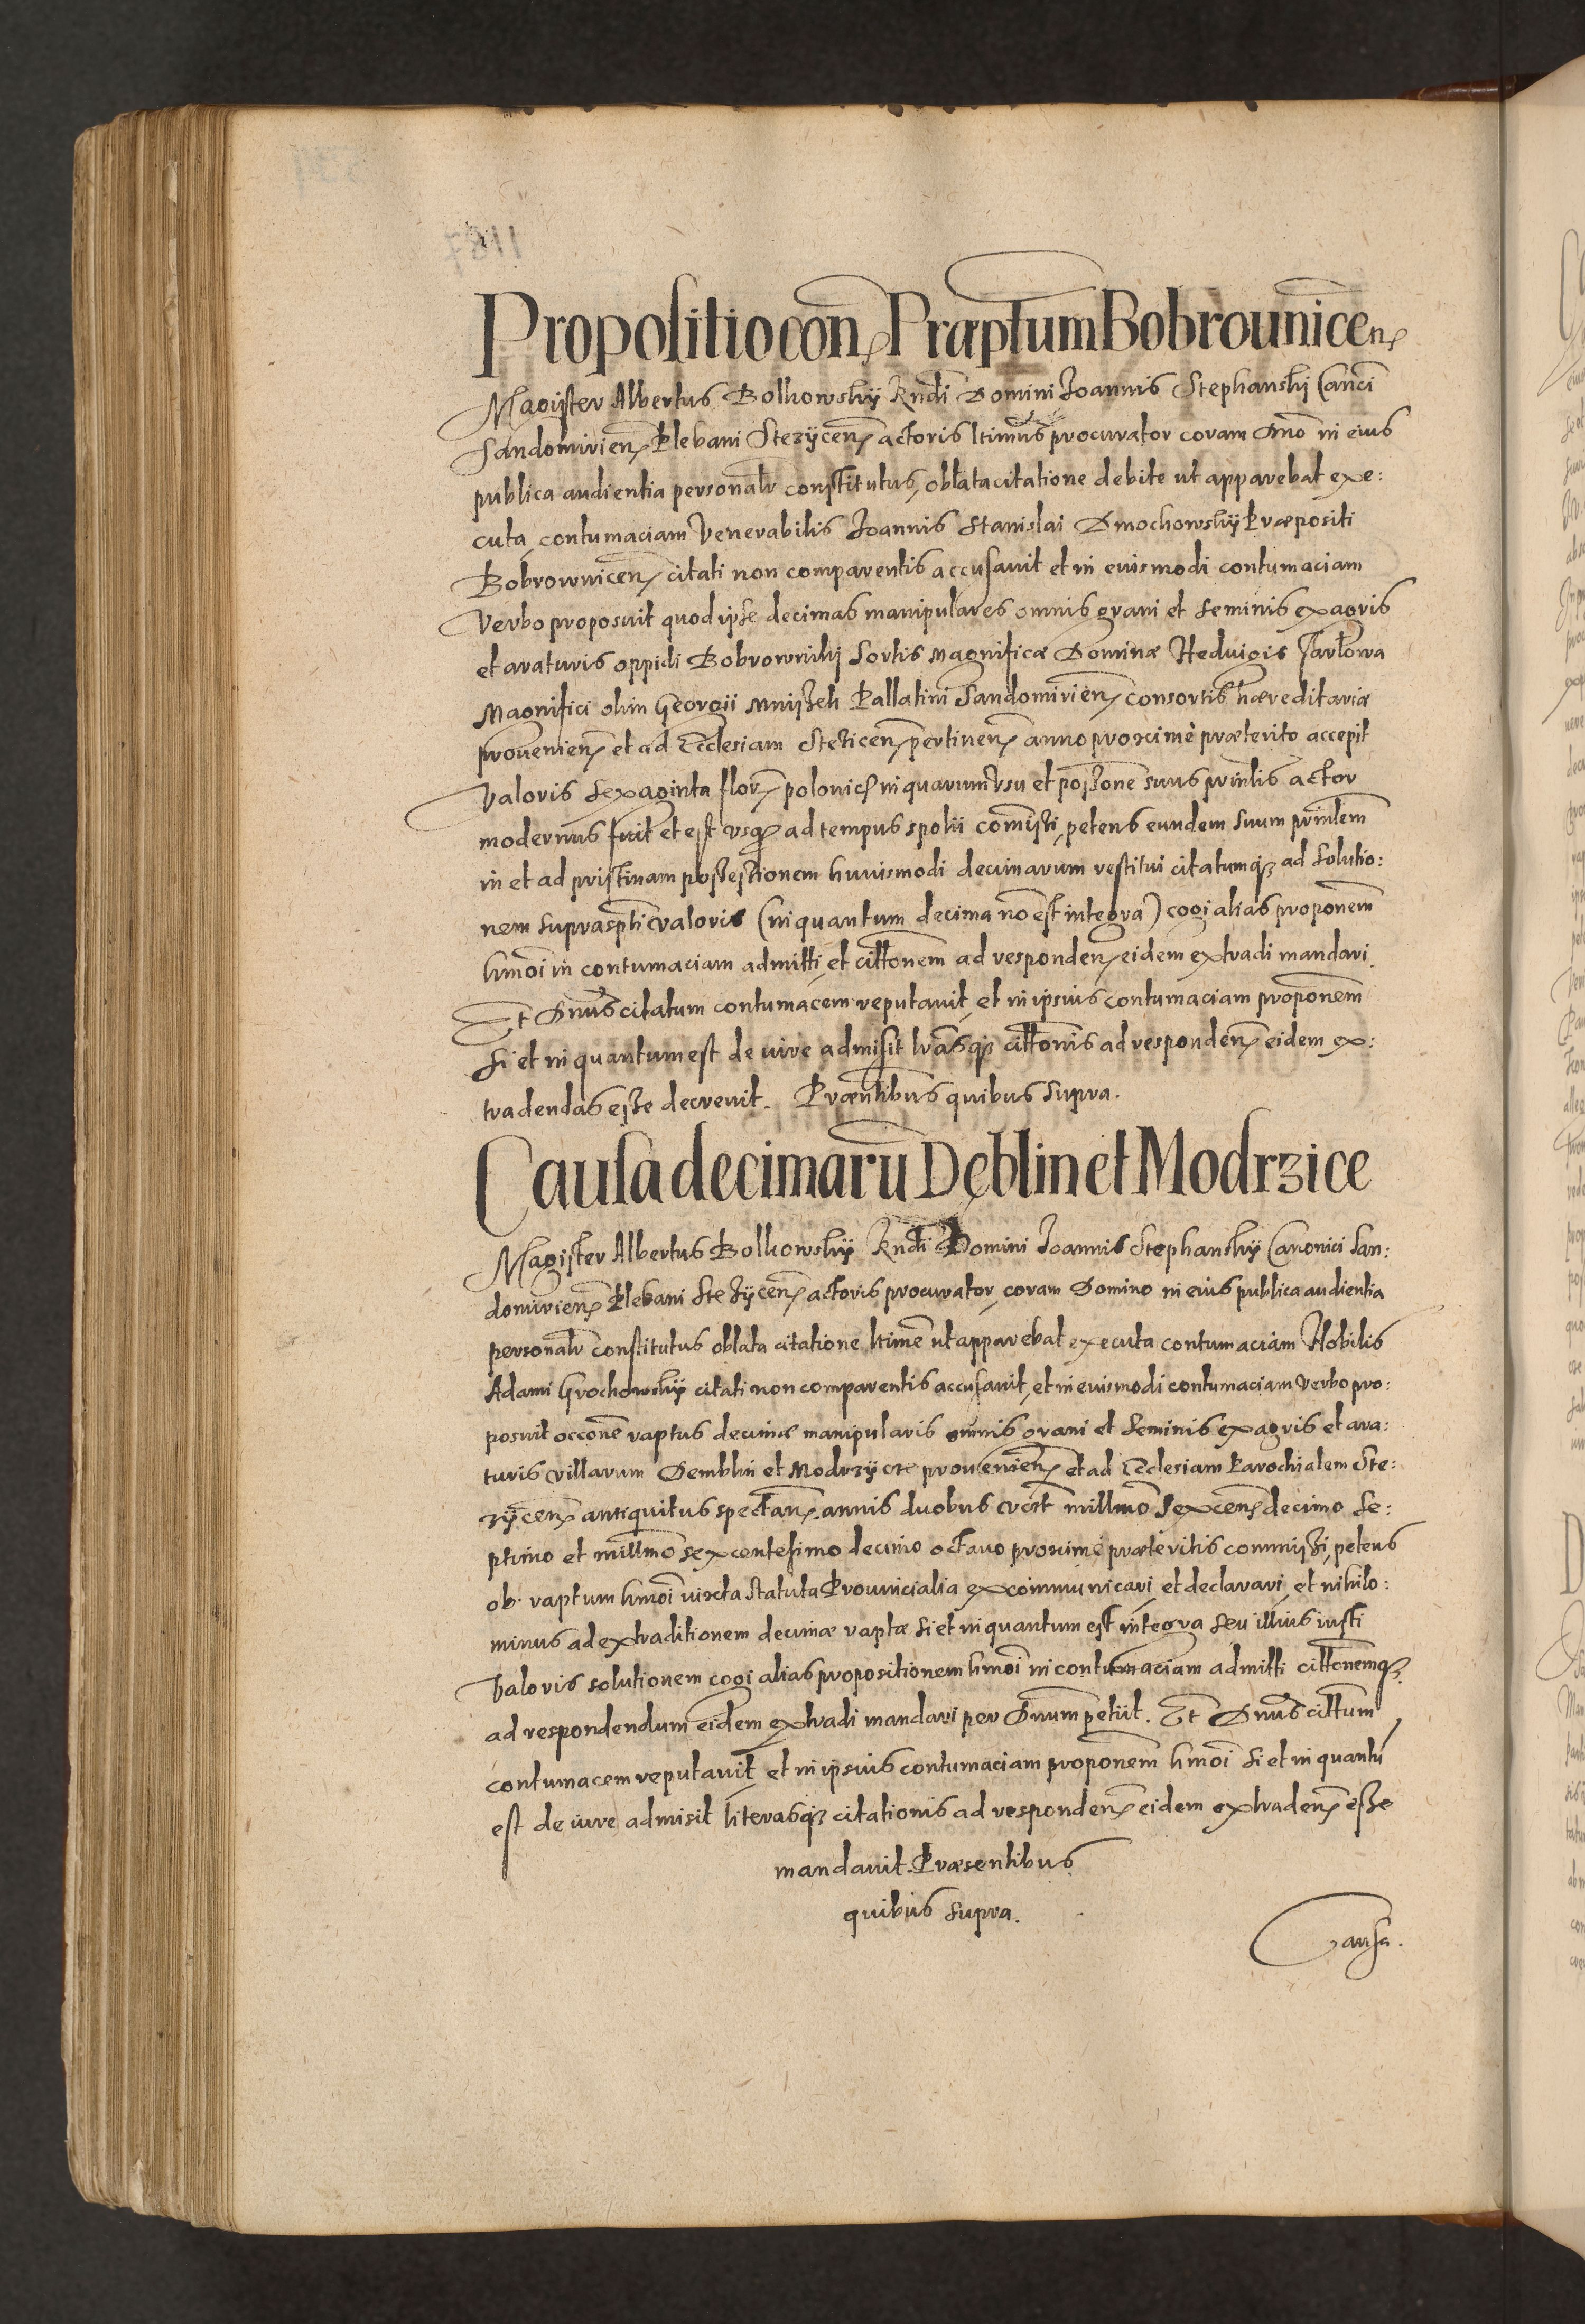 Propositio con. Præptum Bobrounicen.
Magister Albertus Bolkowsky Rndi Domini Joannis Stephansky Canci
Sandomirien. Plebani Stezycen. actoris ltimus procurator coram Dno in eius
publica audientia personalr constitutus, oblata citatione debite ut apparebat exe:
cuta, contumaciam Venerabilis Joannis Stanislai Dmochowsky Præpositi
Bobrownicen. citati non comparentis accusauit et in euismodi contumaciam
Verbo proposuit quod ipse decimas manipulares omnis grani et seminis ex agris
et araturis oppidi Bobrowniky sortis Magnificæ Dominæ Heduigis Tarłowa
Magnifici olim Georgii Mniszek Pallatini Sandomirien. consortis hæreditariæ
prouenien. et ad Ecclesiam Stezicen. pertinen. anno proxime præterito accepit
Valoris sexaginta floren. polonical. in quarum vsu et possone suus prinlis actor
modernus fuit et est vsq ad tempus spolii comissi, petens eundem suum prinlem
in et ad pristinam possessionem huiusmodi decimarum restitui citatumq ad solutio:
nem suprasptì valoris (in quantum decima no est integra) cogi alias proponem
hmoi in contumaciam admitti, et cittonem ad responden. eidem extradi mandari.
Et Dnus citatum contumacem reputauit, et in ipsius contumaciam proponem
si et in quantum est de iure admisit lrasq cittonis ad responden. eidem ex:
tradendas esse decreuit. Præntibus quibus supra.
Causa decimarū Dęblin et Modrzice
Magister Albertus Bolkowsky Rndi Domini Joannis Stephansky Canonici San:
domirien. Plebani Stezycen. actoris procurator, coram Domino in eius publica audientia
personalr constitutus oblata citatione ltime ut apparebat executa contumaciam Nobilis
Adami Grochowsky citati non comparentis accusauit, et in euismodi contumaciam verbo pro:
posuit occone raptus decimæ manipularis omnis grani et seminis ex agris et ara:
turis villarum Demblin et Modrzyce prouenien. et ad Ecclesiam Parochialem Ste:
zycen. antiquitus spectan. annis duobus vdct millmo sexcens decimo se:
ptimo et millmo sexcentesimo decimo octauo proxime præteritis commissi, petens
ob raptum hmoi iuxta statuta Prouincialia excommunicari et declarari, et nihilo:
minus ad extraditionem decimæ raptæ si et in quantum est integra seu illius iusti
Valoris solutionem cogi alias propositionem hmoi in contumaciam admitti cittonemq
ad respondendum eidem extradi mandari per Dnum petiit. Et Dnus cittum
contumacem reputauit, et in ipsius contumaciam proponem hmoi si et in quantū
est de iure admisit literasq citationis ad responden. eidem extraden. esse
mandauit. Præsentibus
quibus supra.
Causa.